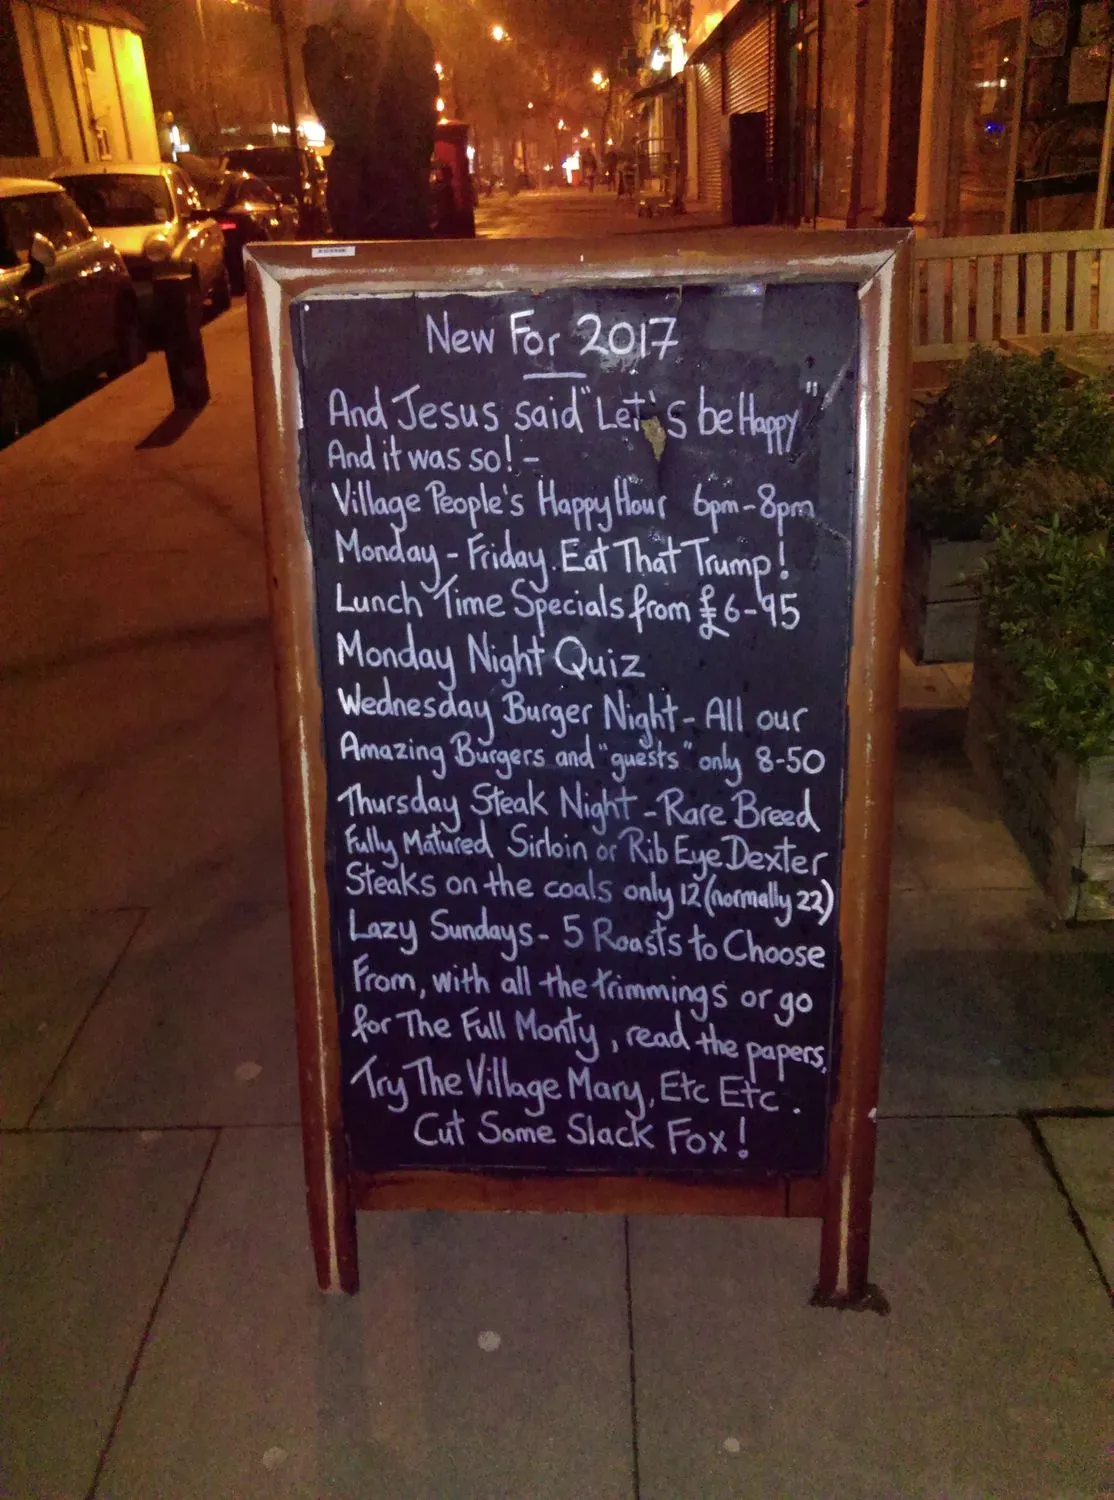 New For 2017
And Jesus said "Let's be Happy"
And it was so! -
Village People's Happy Hour 6pm-8pm
Monday - Friday. Eat That Trump!
Lunch Time Specials from £6-95
Monday Night Quiz
Wednesday Burger Night - All our
Amazing Burgers and "guests" only 8-50
Thursday Steak Night - Rare Breed
Fully Matured Sirloin or Rib Eye Dexter
Steaks on the coals only 12 (normally 22)
Lazy Sundays - 5 Roasts to Choose
From, with all the trimmings or go
for The Full Monty, read the papers,
Try The Village Mary, Etc Etc.
Cut Some Slack Fox!